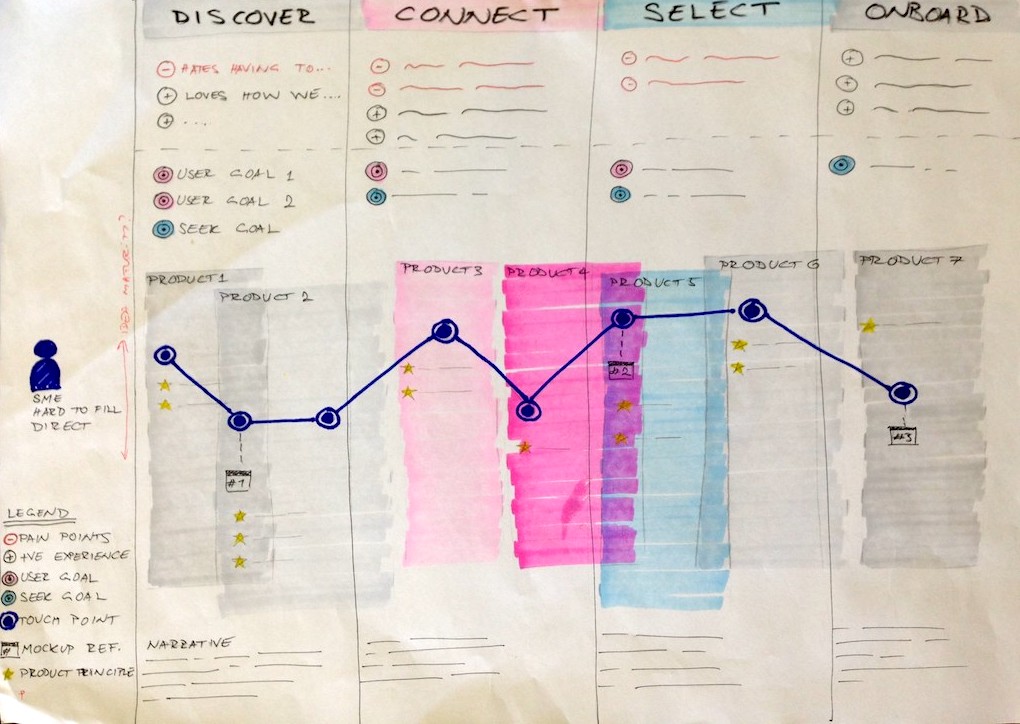 DISCOVER
CONNECT
SELECT
ONBOARD
HATES HAVING TO...
LOVES HOW WE....
...
USER GOAL 1
USER GOAL 2
SEEK GOAL
IDEA MATURITY?
PRODUCT 1
PRODUCT 2
PRODUCT 3
PRODUCT 4
PRODUCT 5
PRODUCT 6
PRODUCT 7
#1
#2
#3
SME
HARD TO FILL
DIRECT
LEGEND
PAIN POINTS
+VE EXPERIENCE
USER GOAL
SEEK GOAL
TOUCH POINT
# MOCKUP REF.
PRODUCT PRINCIPLE
NARRATIVE